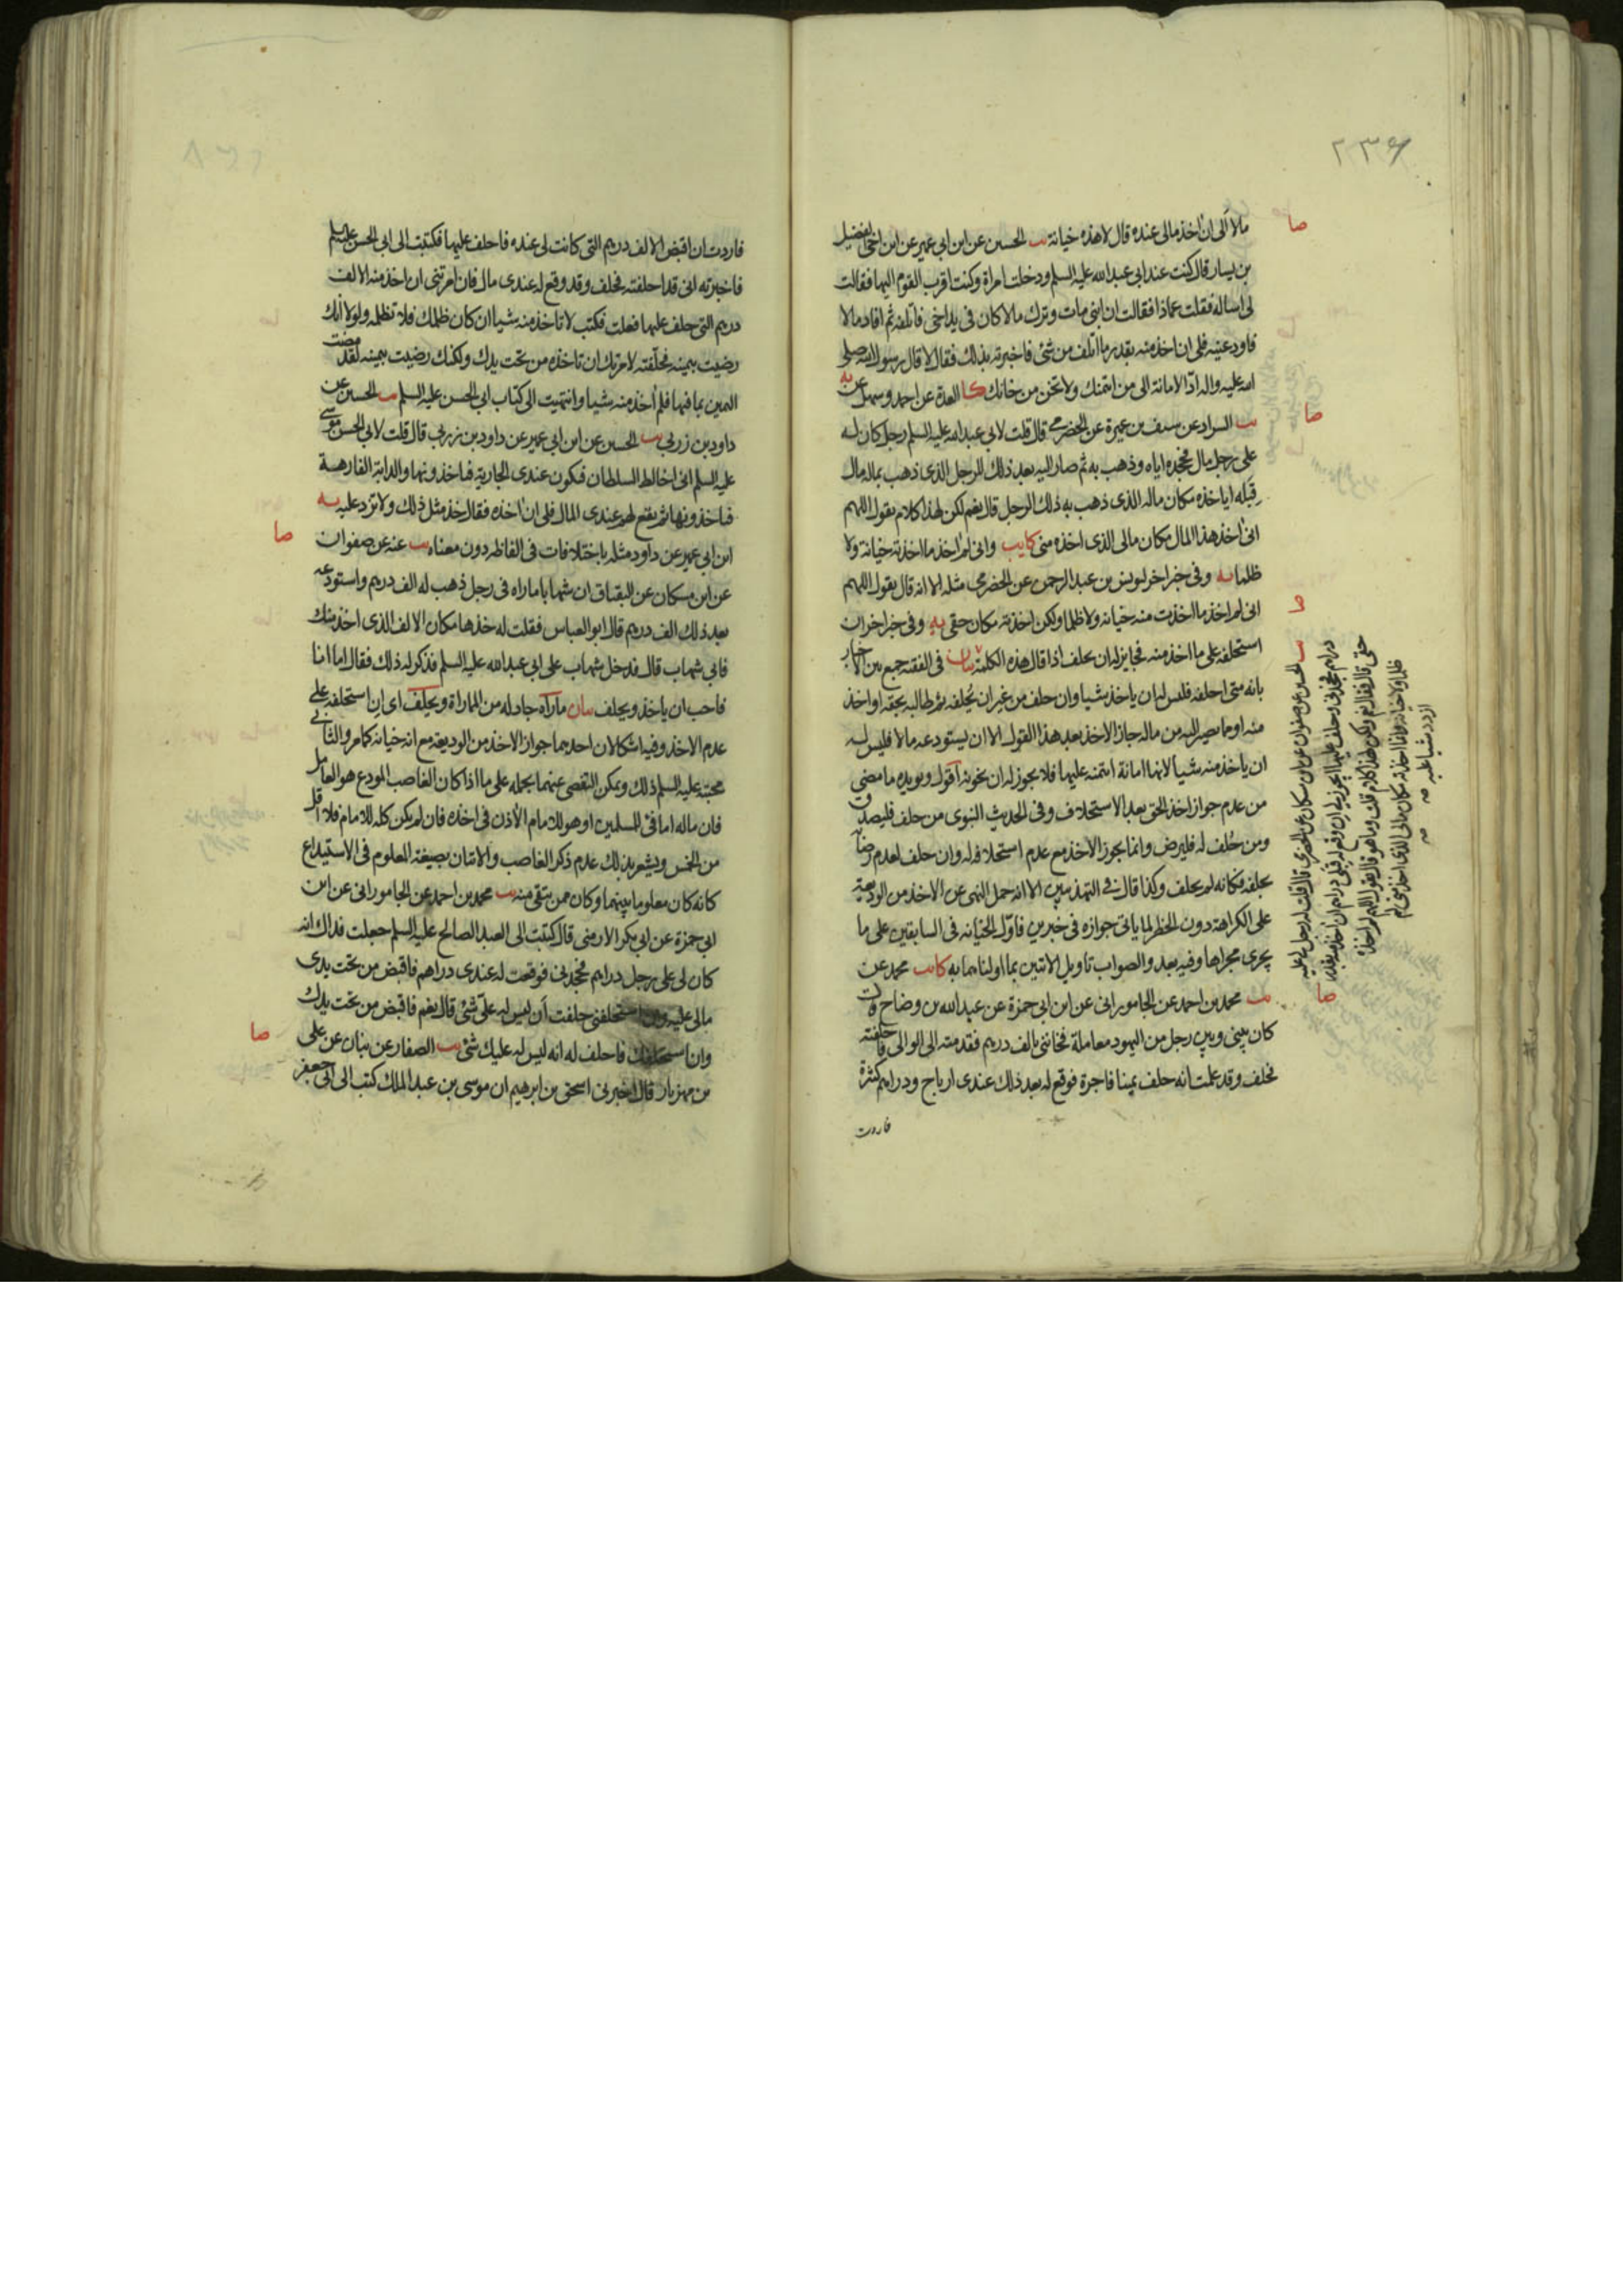 ٢٣٦
صا
مالا ألى ان آخذ مالى عنده قال لا هذه خيانة يب الحسين عن ابن ابى عمير عن ابن اخى الفضيل
بن يسار قال كنت عند ابى عبدالله عليه السلم ودخلت امراة وكنت اقرب القوم اليها فقالت
لى اساله فقلت عماذا فقالت ان ابنى مات وترك مالا كان فى يد اخى فاتلفه ثم افاد مالا
فاودعنيه فلى ان اخذ منه بقدر ما اتلف من شئ فاخبرته بذلك فقال لا قال رسول الله صلى
الله عليه واله ادّ الامانة الى من ائتمنك ولا تخن من خانك كا العدة عن احمد وسهل عن
صا
يب السراد عن سيف بن عميرة عن الحضرمى قال قلت لابى عبدالله عليه السلم رجل كان له
على رجل مال فجحده اياه وذهب به ثم صار اليه بعد ذلك للرجل الذى ذهب بماله مال
قِبله اياخذه مكان ماله الذى ذهب به ذلك الرجل قال نعم لكن لهذا كلام يقول اللهم
انى اخذ هذا المال مكان مالى الذى اخذه منى كا يب وانى لم اخذ ما اخذته خيانة ولا
ظلما يه وفى خبر اخر ليونس بن عبد الرحمن عن الحضرمى مثله الا انه قال يقول اللهم
انى لم اخذ ما اخذت منه خيانة ولا ظلما ولكن اخذته مكان حقى يه وفى خبر اخر ان
استحلفه على ما اخذ منه فجايز له ان يحلف اذا قال هذه الكلمة بيان فى الفقيه جمع بين الاخبار
بانه متى احلفه فليس له ان ياخذ شيا وان حلف من غير ان يُحلفه ثم طالبه بحقه او اخذ
منه او ما يصير اليه من ماله جاز الاخذ بعد هذا القول الا ان يستودعه مالا فليس له
ان ياخذ منه شيا لانها امانة ائتمنه عليها فلا يجوز له ان يخونه اقول ويويده ما مضى
من عدم جواز اخذ الحق بعد الاستحلاف وفى الحديث النبوى من حلف فليصدق
ومن حُلف له فليرض وانما يجوز الاخذ مع عدم استحلافه له وان حلف لعدم رضاه
بحلفه فكانه لم يحلف وكذا قال فى التهذيبين الا انه حمل النهى عن الاخذ من الوديعة
على الكراهة دون الحظر لما ياتى جوازه فى خبرين فاوّل الخيانة فى السابقين على ما
يجرى مجراها وفيه بعد والصواب تاويل الاتيين بما اولناهما به كا يب محمد عن
يب محمد بن احمد عن الجامورانى عن ابن ابى حمزة عن عبد الله بن وضاح قال
صا
كان بينى وبين رجل من اليهود معاملة فخاننى بالف درهم فقدمته الى الوالى فاحلفته
فحلف وقد علمت انه حلف يمينا فاجرة فوقع له بعد ذلك عندى ارباح ودراهم كثيرة
فاردت
يب الحسين عن صفوان عن ابن مسكان عن الحضرمى قال قلت له رجل لى عليه
دراهم فجحدنى وحلف عليها ايجوز لى ان وقع له قبلى دراهم ان اخذ منه بقدر
حقى قال فقال نعم ولكن لهذا كلام قلت وما هو قال يقول اللهم لم اخذه
ظلما ولا خيانة وانما اخذته مكان مالى الذى اخذ منى لم
ازدد شيا عليه صح
فاردت ان اقبض الالف درهم التى كانت لى عنده فاحلف عليها فكتبت الى ابى الحسن عليه السلم
فاخبرته انى قد احلفته فحلف وقد وقع له عندى مال فان امرتنى ان اخذ منه الالف
درهم التى حلف عليها فعلت فكتب لا تاخذ منه شيا ان كان ظلمك فلا تظلمه ولولا انك
رضيت بيمينه فحلّفته لامرتك ان تاخذه من تحت يدك ولكنك رضيت بيمينه لقد مضت
اليمين بما فيها فلم اخذ منه شيا وانتهيت الى كتاب ابى الحسن عليه السلم يب الحسين عن
داود بن زربى يب الحسين عن ابن ابى عمير عن داود بن زربى قال قلت لابى الحسن موسى
عليه السلم انى اخالط السلطان فيكون عندى الجارية فياخذونها والدابة الفارهة
فياخذونها ثم يقع لهم عندى المال فلى ان اخذه فقال خذ مثل ذلك ولا تزد عليه يه
ابن ابى عمير عن داود مثله باختلافات فى الفاظه دون معناه يب عنه عن صفوان
صا
عن ابن مسكان عن البقباق ان شهابا ماراه فى رجل ذهب له الف درهم واستودعه
بعد ذلك الف درهم قال ابو العباس فقلت له خذها مكان الالف الذى اخذ منك
فابى شهاب قال فدخل شهاب على ابى عبد الله عليه السلم فذكر له ذلك فقال اما انا
فاحب ان ياخذ ويحلف بيان ماراه جادله من المماراة ويحلف اى ان استحلفه على
عدم الاخذ وفيه اشكالان احدهما جواز الاخذ من الوديعة مع انه خيانة كما مر والثانى
محبته عليه السلم ذلك ويمكن التفصى عنهما بحمله على ما اذا كان الغاصب المودع هو العامل
فان ماله اما فئ للمسلمين او هو للامام الاذن فى اخذه فان لم يكن كله للامام فلا اقل
من الخمس ويشعر بذلك عدم ذكر الغاصب والاتيان بصيغة المعلوم فى الاستيداع
كانه كان معلوما بينهما وكان ممن يتقى منه يب محمد بن احمد عن الجامورانى عن ابن
ابى حمزة عن ابى بكر الارمنى قال كتبت الى العبد الصالح عليه السلم جعلت فداك انه
كان لى على رجل دراهم فجحدنى فوقعت له عندى دراهم فاقبض من تحت يدى
مالى عليه وان استحلفنى حلفت أن ليس له علىّ شئ قال نعم فاقبض من تحت يدك
وان استحلفك فاحلف له انه ليس له عليك شئ يب الصفار عن بنان عن على
صا
بن مهزيار قال اخبرنى اسحق بن ابرهيم ان موسى بن عبد الملك كتب الى ابى جعفر